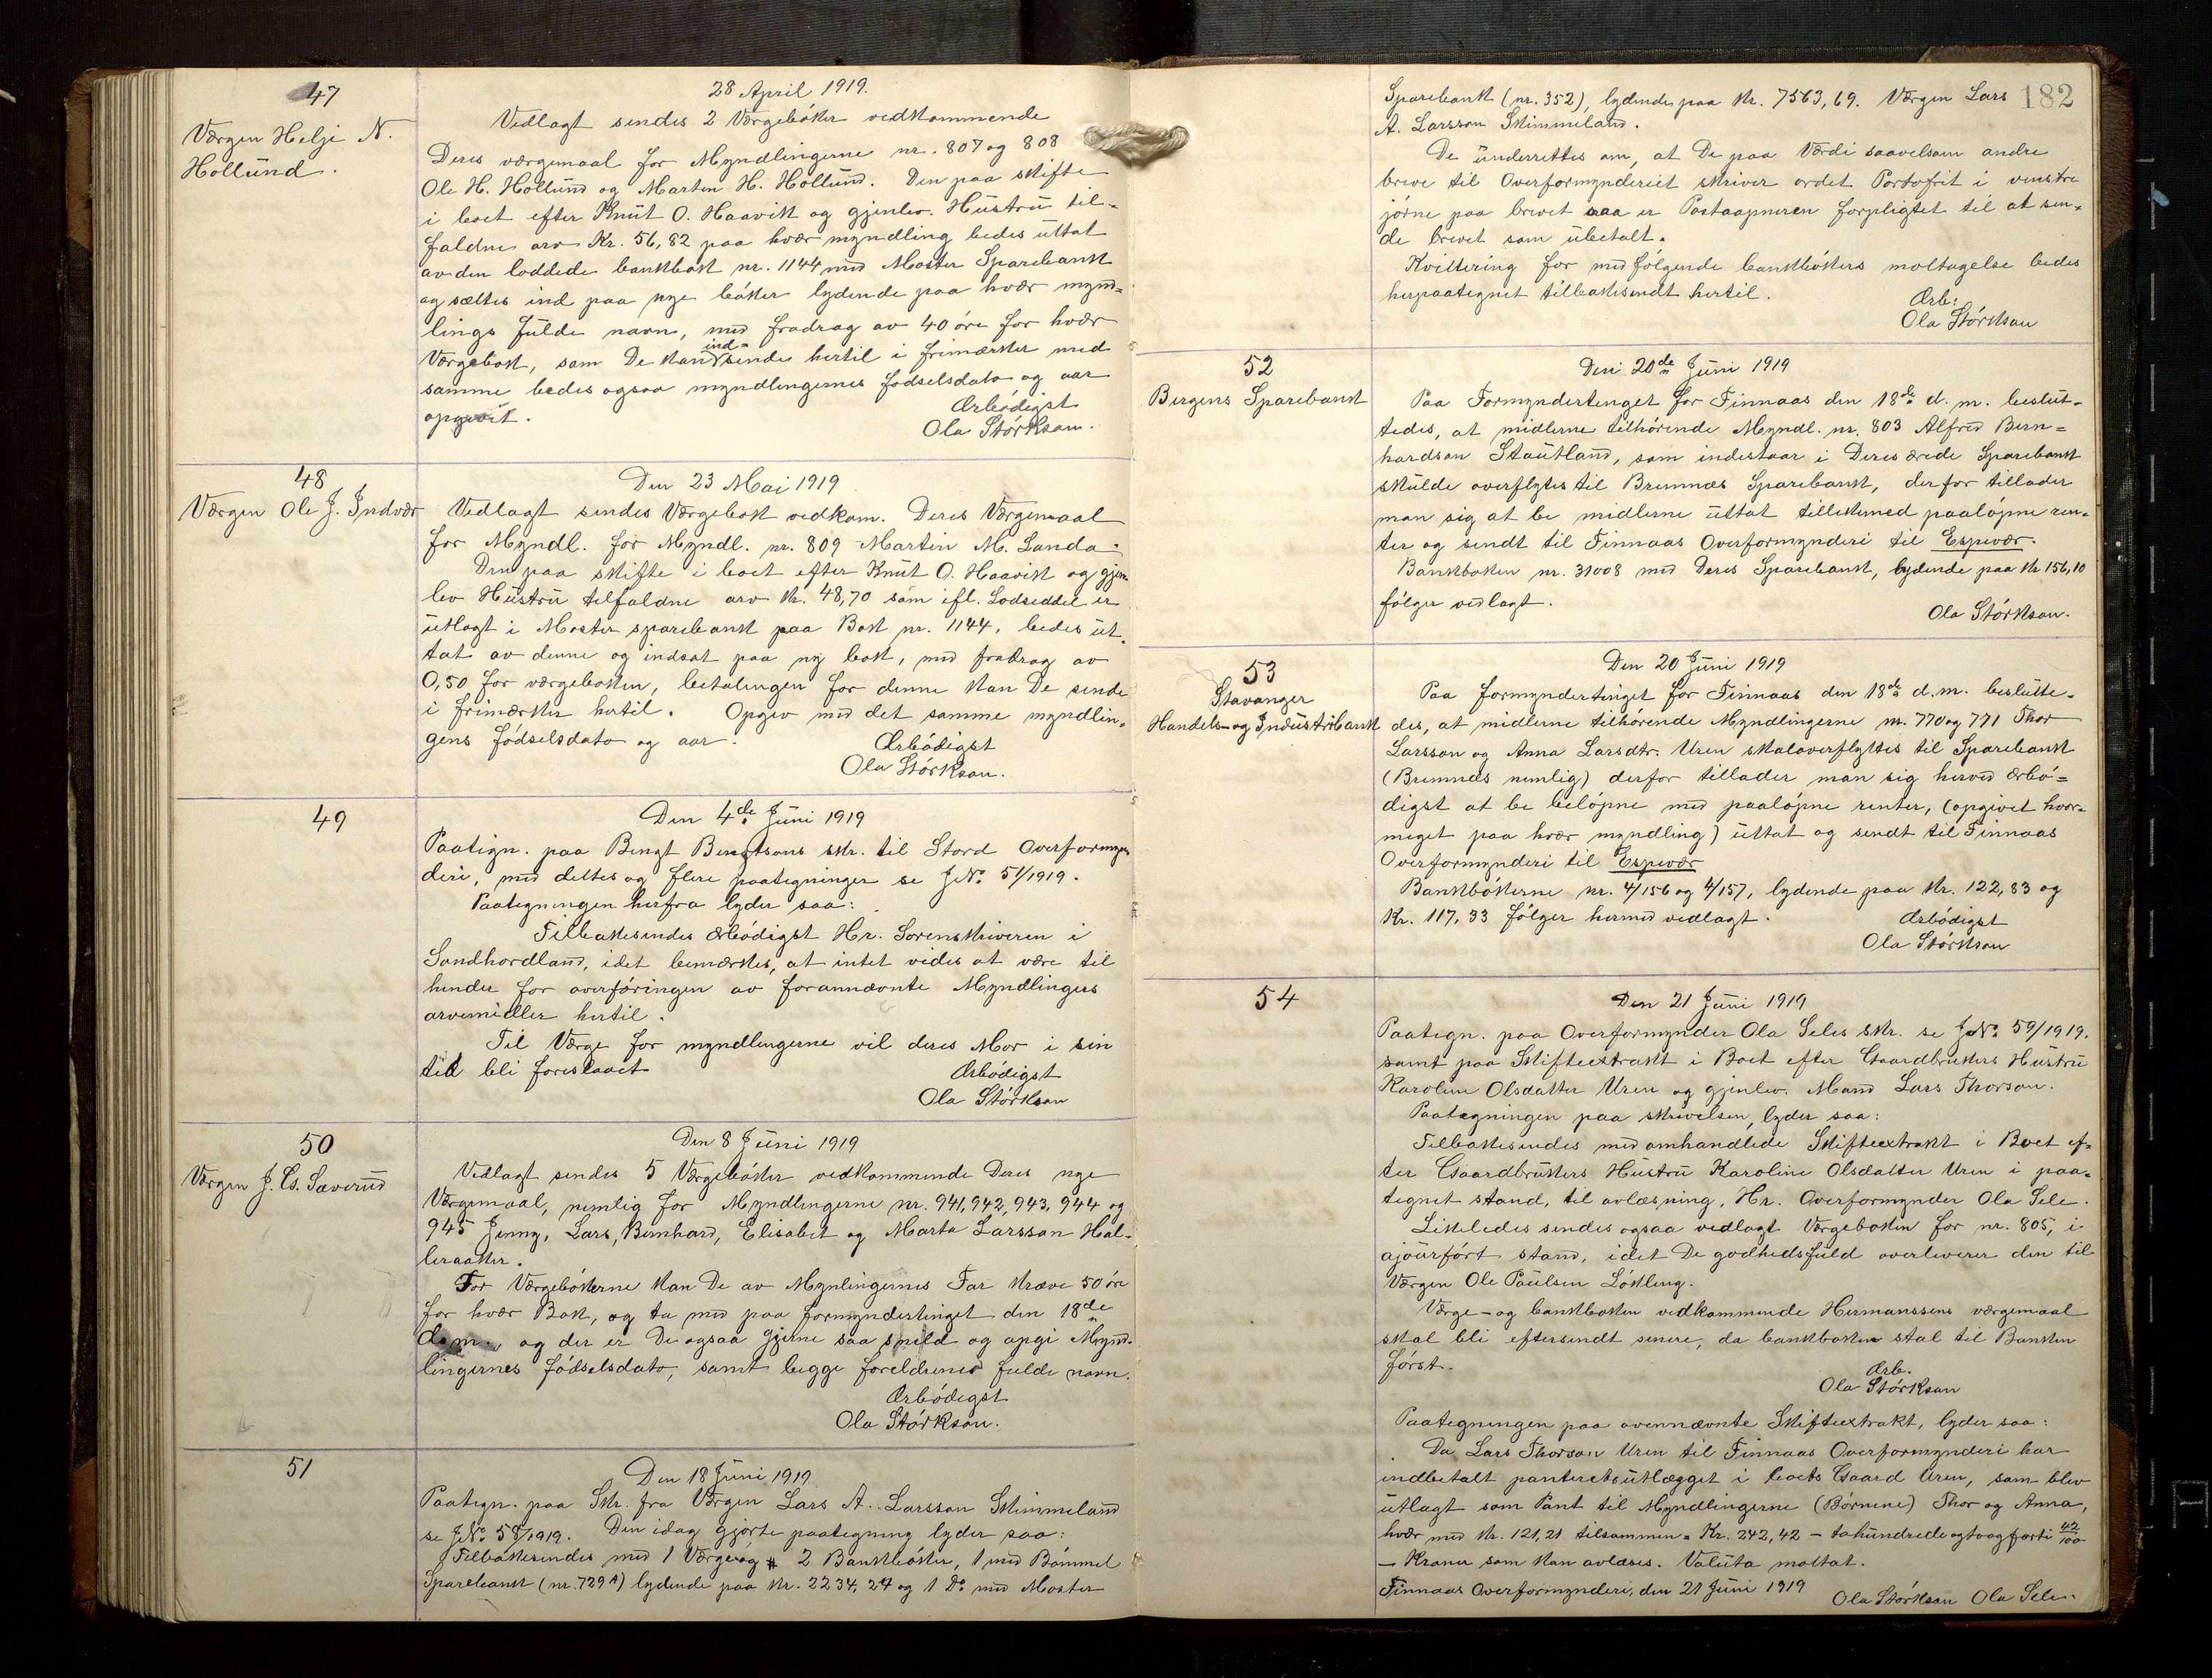 47
Værgen Helje N.
Hollund.
28 April 1919.
Vedlagt sendes 2 Værgebøker vedkommende
Deres værgemaal for Myndlingerne nr. 807 og 808
Ole H. Hollund og Marten H. Hollund. Den paa skifte
i boet efter Knut O. Haavik og gjenlev. Hustru til-
faldne arv Kr. 56,82 paa hvær myndling bedes uttat
av den loddede bankbok nr. 1144 med Moster Sparebank
og sættes ind paa nye bøker lydende paa hvær mynd-
lings fulde navn, med fradrag av 40 øre for hvær
Værgebok, som De kan ind-sende hertil i frimærker med
samme bedes ogsaa myndlingernes fødselsdato og aar
opgivit.
Ærbødigst
Ola Størkson.
48
Værgen Ole J. Indvær
Den 23 Mai 1919
Vedlagt sendes Værgebok vedkom. Deres Værgemaal
for Myndl. for Myndl. nr. 809 Martin M. Landa.
Den paa skifte i boet efter Knut O. Haavik og gjen-
lev Hustru tilfaldne arv Kr. 48,70 som ifl. Lodseddel er
utlagt i Moster sparebank paa Bok nr. 1144, bedes ut-
tat av denne og indsat paa ny bok, med fradrag av
0,50 for værgeboken, betalingen for denne kan De sende
i frimærker hertil. Opgiv med det samme myndlin-
gens fødselsdato og aar.
Ærbødigst
Ola Størkson.
49
Den 4de Juni 1919
Paategn. paa Bengt Bengtsons skr. til Stord Overformyn-
deri, med dettes og flere paategninger se JNo. 51/1919.
Paategningen herfra lyder saa:
Tilbakesendes ærbødigst Hr. Sorenskriveren i
Sondhordland, idet bemærkes, at intet vides at være til
hinder for overføringen av forannævnte Myndlingers
arvemidler hertil.
Til Værge for myndlingerne vil deres Mor i sin
tid bli foreslaaet
Ærbødigst
Ola Størkson
50
Værgen J. Cs. Sæverud
Den 8 Juni 1919
Vedlagt sendes 5 Værgebøker vedkommende Deres nye
Værgemaal, nemlig for Myndlingerne nr. 941, 942, 943, 944 og
945 Jenny, Lars, Bernhard, Elisabet og Marta Larsson Hal-
leraaker.
For Værgebøkerne kan De av Mynlingernes Far kræve 50 øre
for hvær Bok, og ta med paa formyndertinget den 18de
d. m., og der er De ogsaa gjerne saa snild og opgi Mynd-
lingernes fødselsdato, samt begge foreldrenes fulde navn.
Ærbødigst
Ola Størkson.
51
Den 18 Juni 1919.
Paategn. paa Skr. fra Værgen Lars A. Larsson Skimmeland
se JNo. 58/1919. Den idag gjorte paategning lyder saa:
Tilbakesendes med 1 Værge og 2 Bankbøker, 1 med Bømmel
Sparebank (nr. 729A) lydende paa Kr. 2234,24 og 1 Do med Moster
182
Sparebank (nr. 352), lydende paa Kr. 7563,69. Værgen Lars
A. Larsson Skimmeland.
De underrettes om, at De paa Værdi saavelsom andre
breve til Overformynderiet skriver ordet Portofrit i venstre
jørne paa brevet saa er Postaapneren forpligtet til at sen-
de brevet som ubetalt.
Kvittering for medfølgende bankbøkers mottagelse bedes
herpaategnet tilbakesendt hertil.
Ærb:
Ola Størkson
52
Bergens Sparebank
Den 20de Juni 1919
Paa Formyndertinget for Finnaas den 18de d. m. beslut-
tedes, at midlerne tilhørende Myndl. nr. 803 Alfred Bern-
hardson Stautland, som indestaar i Deres ærede Sparebank
skulde overflytes til Bremnæs Sparebank, derfor tillader
man sig at be midlerne uttat tillikemed paaløpne ren-
ter og sendt til Finnaas Overformynderi til Espevær.
Bankboken nr. 31008 med Deres Sparebank, lydende paa Kr 156,10
følger vedlagt.
Ola Størkson.
53
Stavanger
Handels- og Industribank
Den 20 Juni 1919
Paa formyndertinget for Finnaas den 18de d.m. beslutte-
des, at midlerne tilhørende Myndlingerne nr. 770 og 771 Thor
Larsson og Anna Larsdtr. Uren skal overflyttes til Sparebank
(Bremnæs nemlig) derfor tillader man sig herved ærbø-
digst at be beløpne med paaløpne renter, (opgivet hvor-
meget paa hvær myndling) uttat og sendt til Finnaas
Overformynderi til Espevær
Bankbøkerne nr. 4/156 og 4/157, lydende paa Kr. 122,83 og
Kr. 117,33 følger hermed vedlagt.
Ærbødigst
Ola Størkson
54
Den 21 Juni 1919
Paategn. paa Overformynder Ola Seles skr. se JNo. 59/1919.
samt paa Skifteextrakt i Boet efter Gaardbrukers Hustru
Karoline Olsdatter Uren og gjenlev. Mand Lars Thorson.
Paategningen paa skrivelsen, lyder saa:
Tilbakesendes med omhandlede Skifteextrakt i Boet ef-
ter Gaardbrukers Hustru Karoline Olsdatter Uren i paa-
tegnet stand, til avlæsning, Hr. Overformynder Ola Sele.
Likeledes sendes ogsaa vedlagt Værgeboken for nr. 805, i
ajourført stand, idet De godhedsfuld overleverer den til
Værgen Ole Paulsen Løkling.
Værge- og bankboken vedkommende Hermanssens værgemaal
skal bli eftersendt senere, da bankboken skal til Banken
først.
Ærb.
Ola Størkson
Paategningen paa ovennævnte Skifteextrakt, lyder saa:
Da Lars Thorson Uren til Finnaas Overformynderi har
indbetalt panteretsutlægget i boets Gaard Uren, som blev
utlagt som Pant til Myndlingerne (Børnene) Thor og Anna,
hvær med Kr. 121,21 tilsammen = Kr. 242,42 - tohundrede og to og forti 42/100
- Kroner som kan avlæses. Valuta mottat.
Finnaas Overformynderi, den 21 Juni 1919
Ola Størkson Ola Sele.